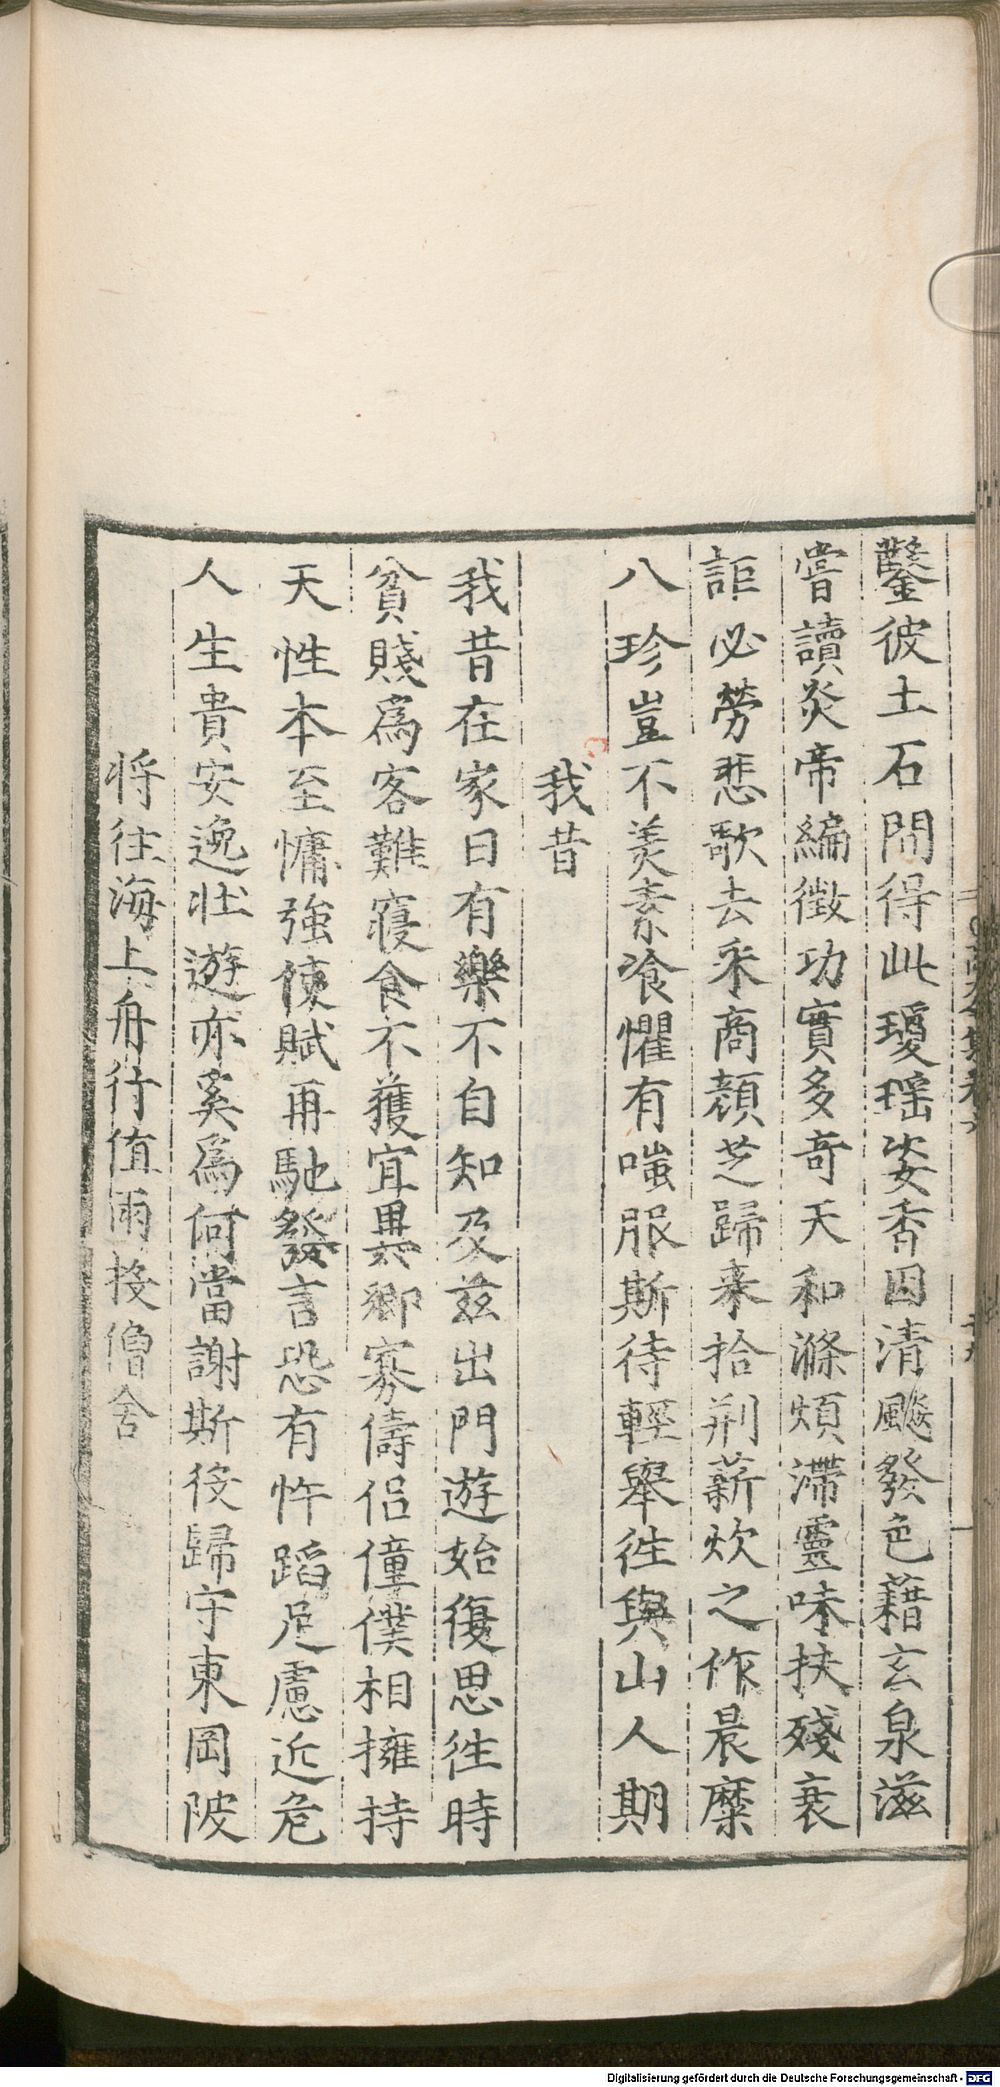 鑿彼土石間得此瓊瑶姿香因清飈發色藉玄泉滋
嘗讀炎帝編徵功實多奇天和滌煩滯靈味扶殘衰
詎必勞悲歌去采商顔芝歸来拾荆薪炊之作晨糜
八珍豈不羙素飡懼有嗤服斯待輕舉徃與山人期
我昔
我昔在家日有樂不自知及兹出門遊始復思徃時
貧賤爲客難寢食不獲宜異鄉寡儔侣僮僕相擁持
天性本至慵強使賦再馳發言恐有忤蹈足慮近危
人生貴安逸壮遊亦奚爲何當謝斯役歸守東岡陂
将往海上舟行值雨投僧舍
Digitalisierung gefördert durch die Deutsche Forschungsgemeinschaft - DFG